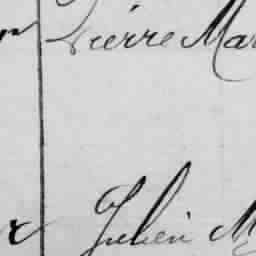 Pierre Mar
Julien M